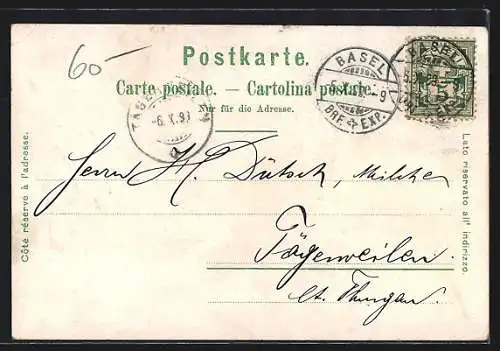 60-
Postkarte.
Carte postale. — Cartolina postale.
Nur für die Adresse.
BASEL
BRF. EXP.
BASEL
-6.X.9
Côté réservé à l'adresse.
Lato riservato all' indirizzo.
Herrn H. Dütsch, Milcher
Tägerweilen
Ct. Thurgau.